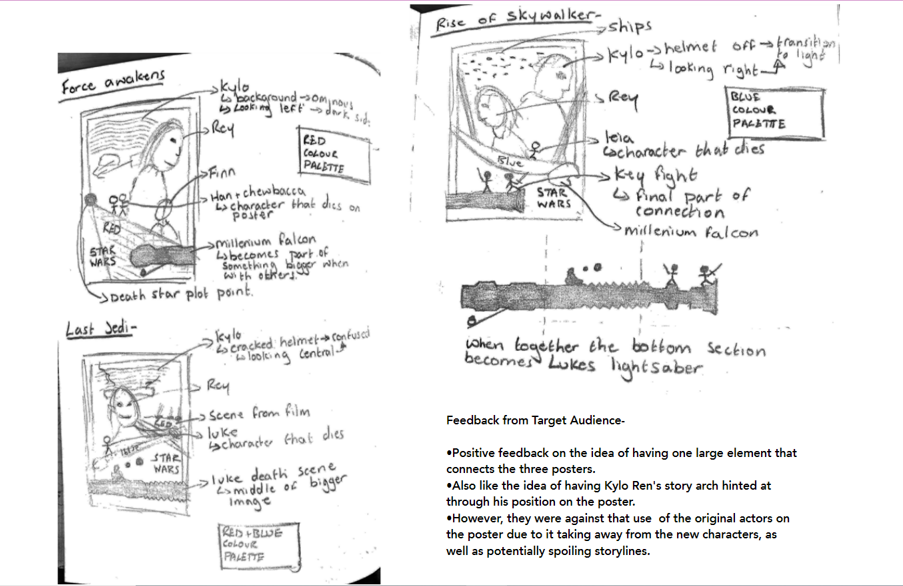 Force awakens
Kylo
↳background→ominous
↳Looking left→dark side
Rey
RED
COLOUR
PALETTE
Finn
Han + chewbacca
↳character that dies on
poster
RED
STAR
WARS
millenium falcon
↳becomes part of
something bigger when
with others.
Death star plot point.
Last Jedi-
Kylo
↳cracked helmet→confused
↳looking central
Rey
Scene from film
RED
luke
↳character that dies
BLUE
STAR
WARS
luke death scene
↳middle of bigger
image
RED + BLUE
COLOUR
PALETTE
Rise of Skywalker-
ships
Kylo→helmet off→transition
to light
↳looking right
Rey
BLUE
COLOUR
PALETTE
leia
↳character that dies
Blue
Key fight
↳final part of
connection
STAR
WARS
millenium falcon
when together the bottom section
becomes Lukes lightsaber
Feedback from Target Audience-
•Positive feedback on the idea of having one large element that
connects the three posters.
•Also like the idea of having Kylo Ren's story arch hinted at
through his position on the poster.
•However, they were against that use  of the original actors on
the poster due to it taking away from the new characters, as
well as potentially spoiling storylines.